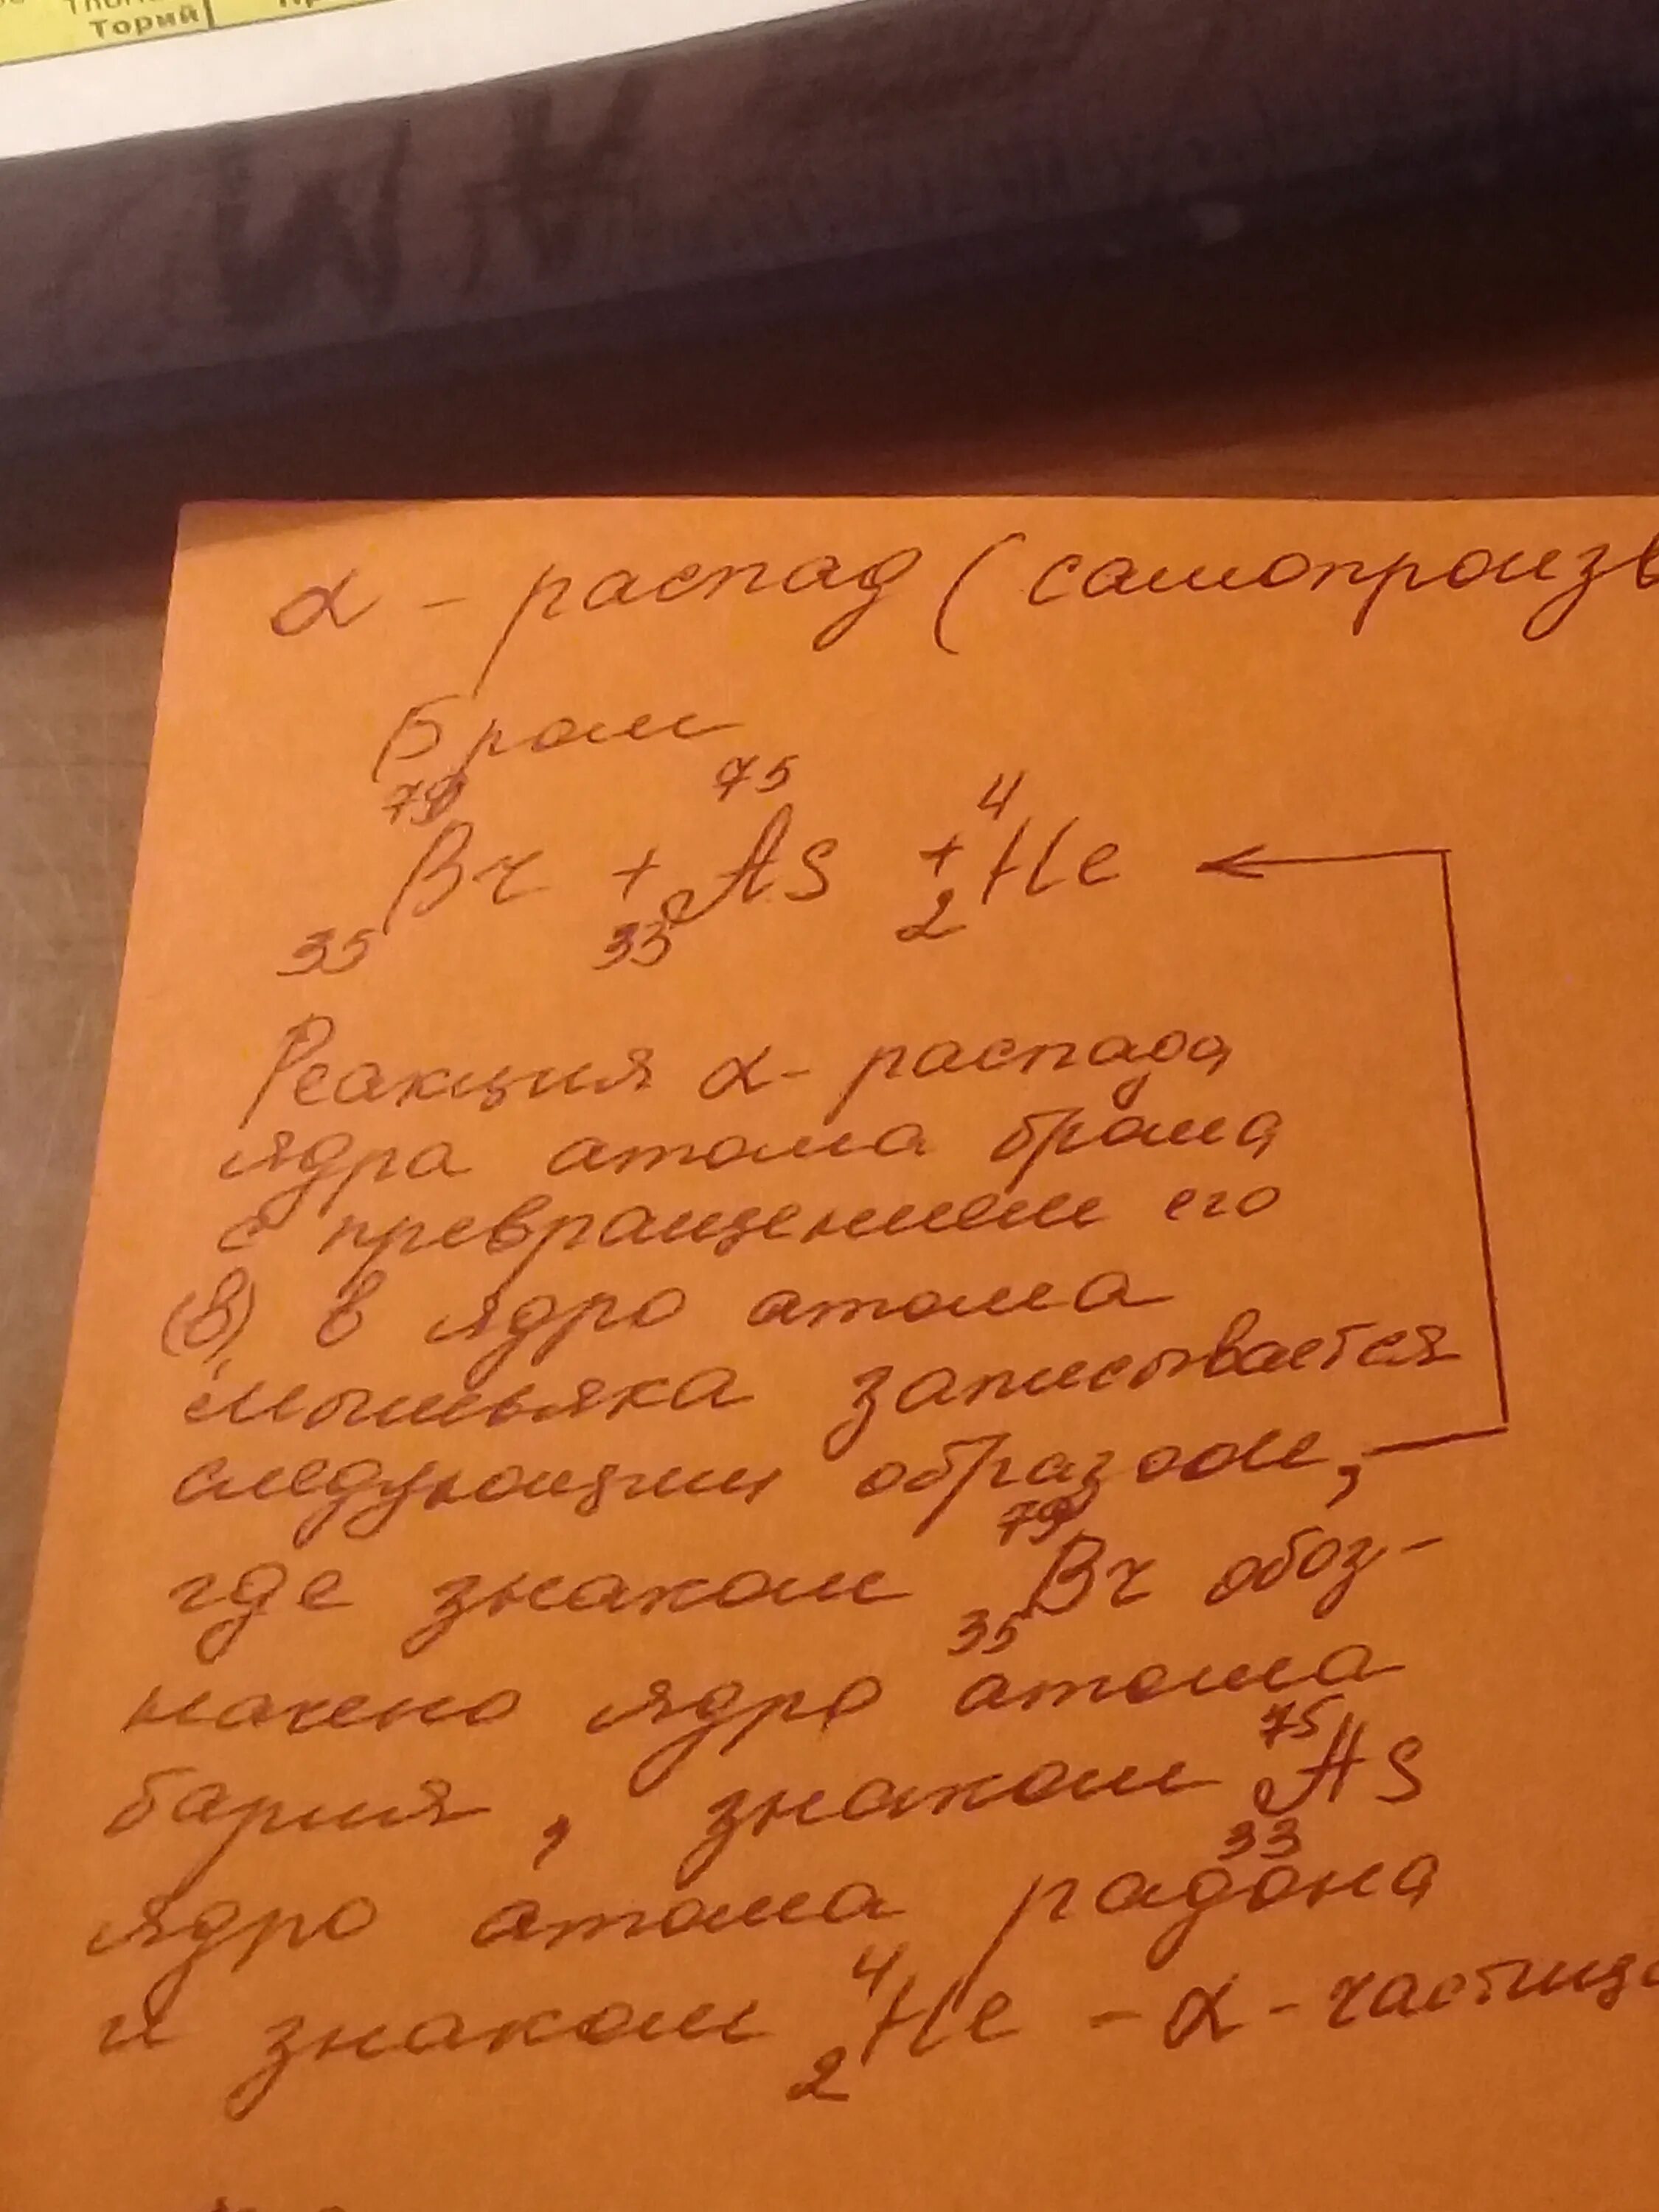 Торий
α - распад (самопроизв
Бром
79 75 4
Br + As + He
35 33 2
Реакция α - распада
ядра атома брома
с превращением его
(в) в ядро атома
мышьяка записывается
следующим образом,
79
где знаком Br обоз-
35
начено ядро атома
75
бария, знаком As
33
ядро атома радона
4
и знаком He - α - частица
2